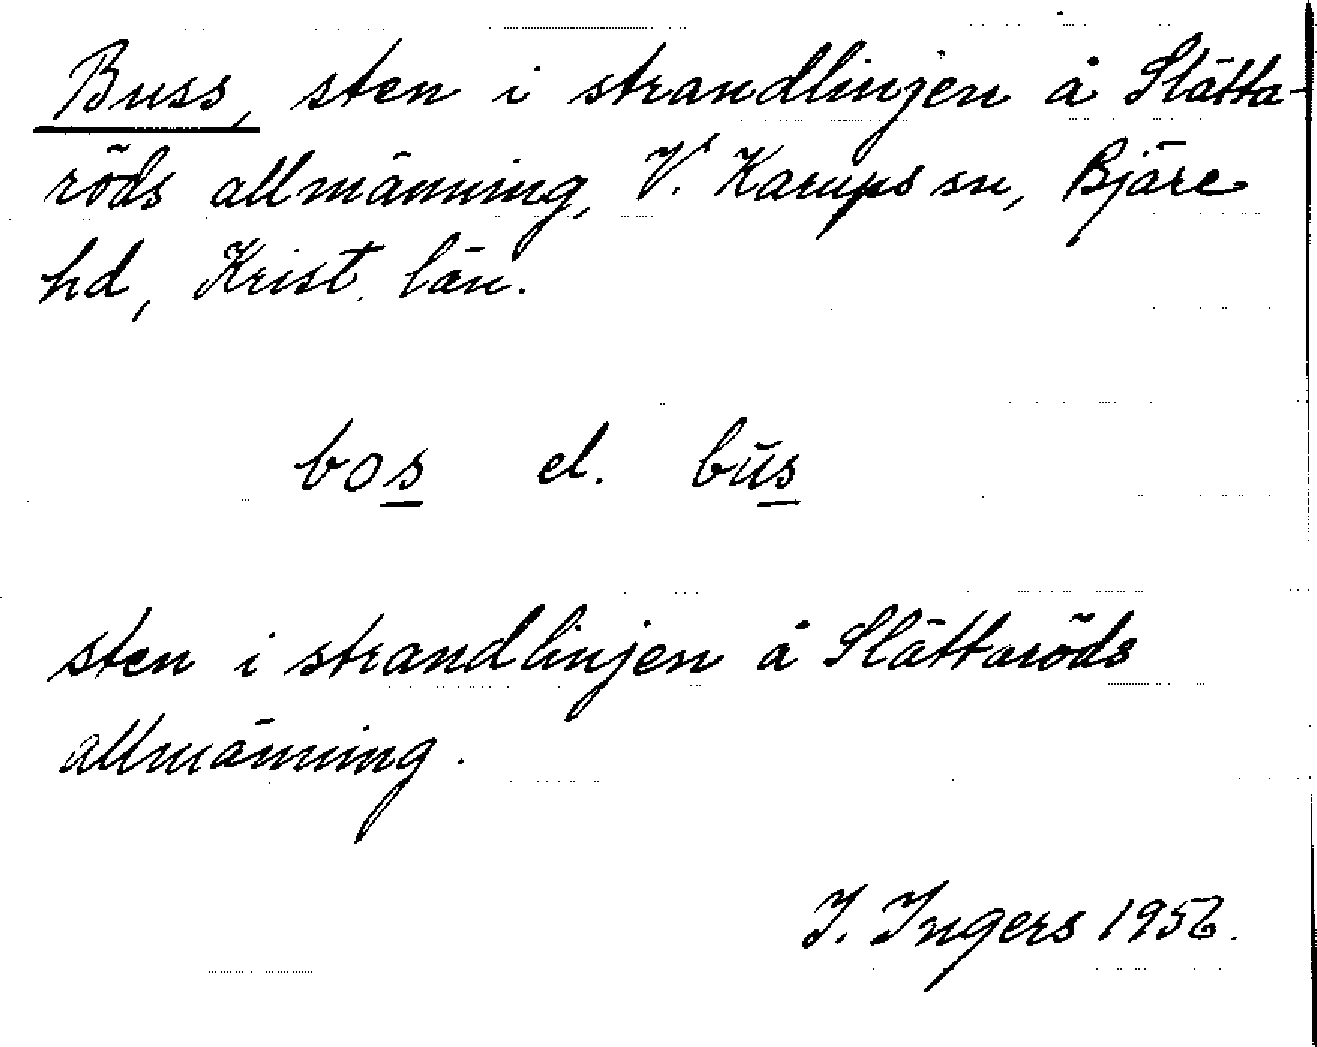 Buss, sten i strandlinjen å Slätta-
röds allmänning, V. Karups sn, Bjäre
hd, Krist. län.
bos el. bus
sten i strandlinjen å Slättaröds
allmänning.
I. Ingers 1956.